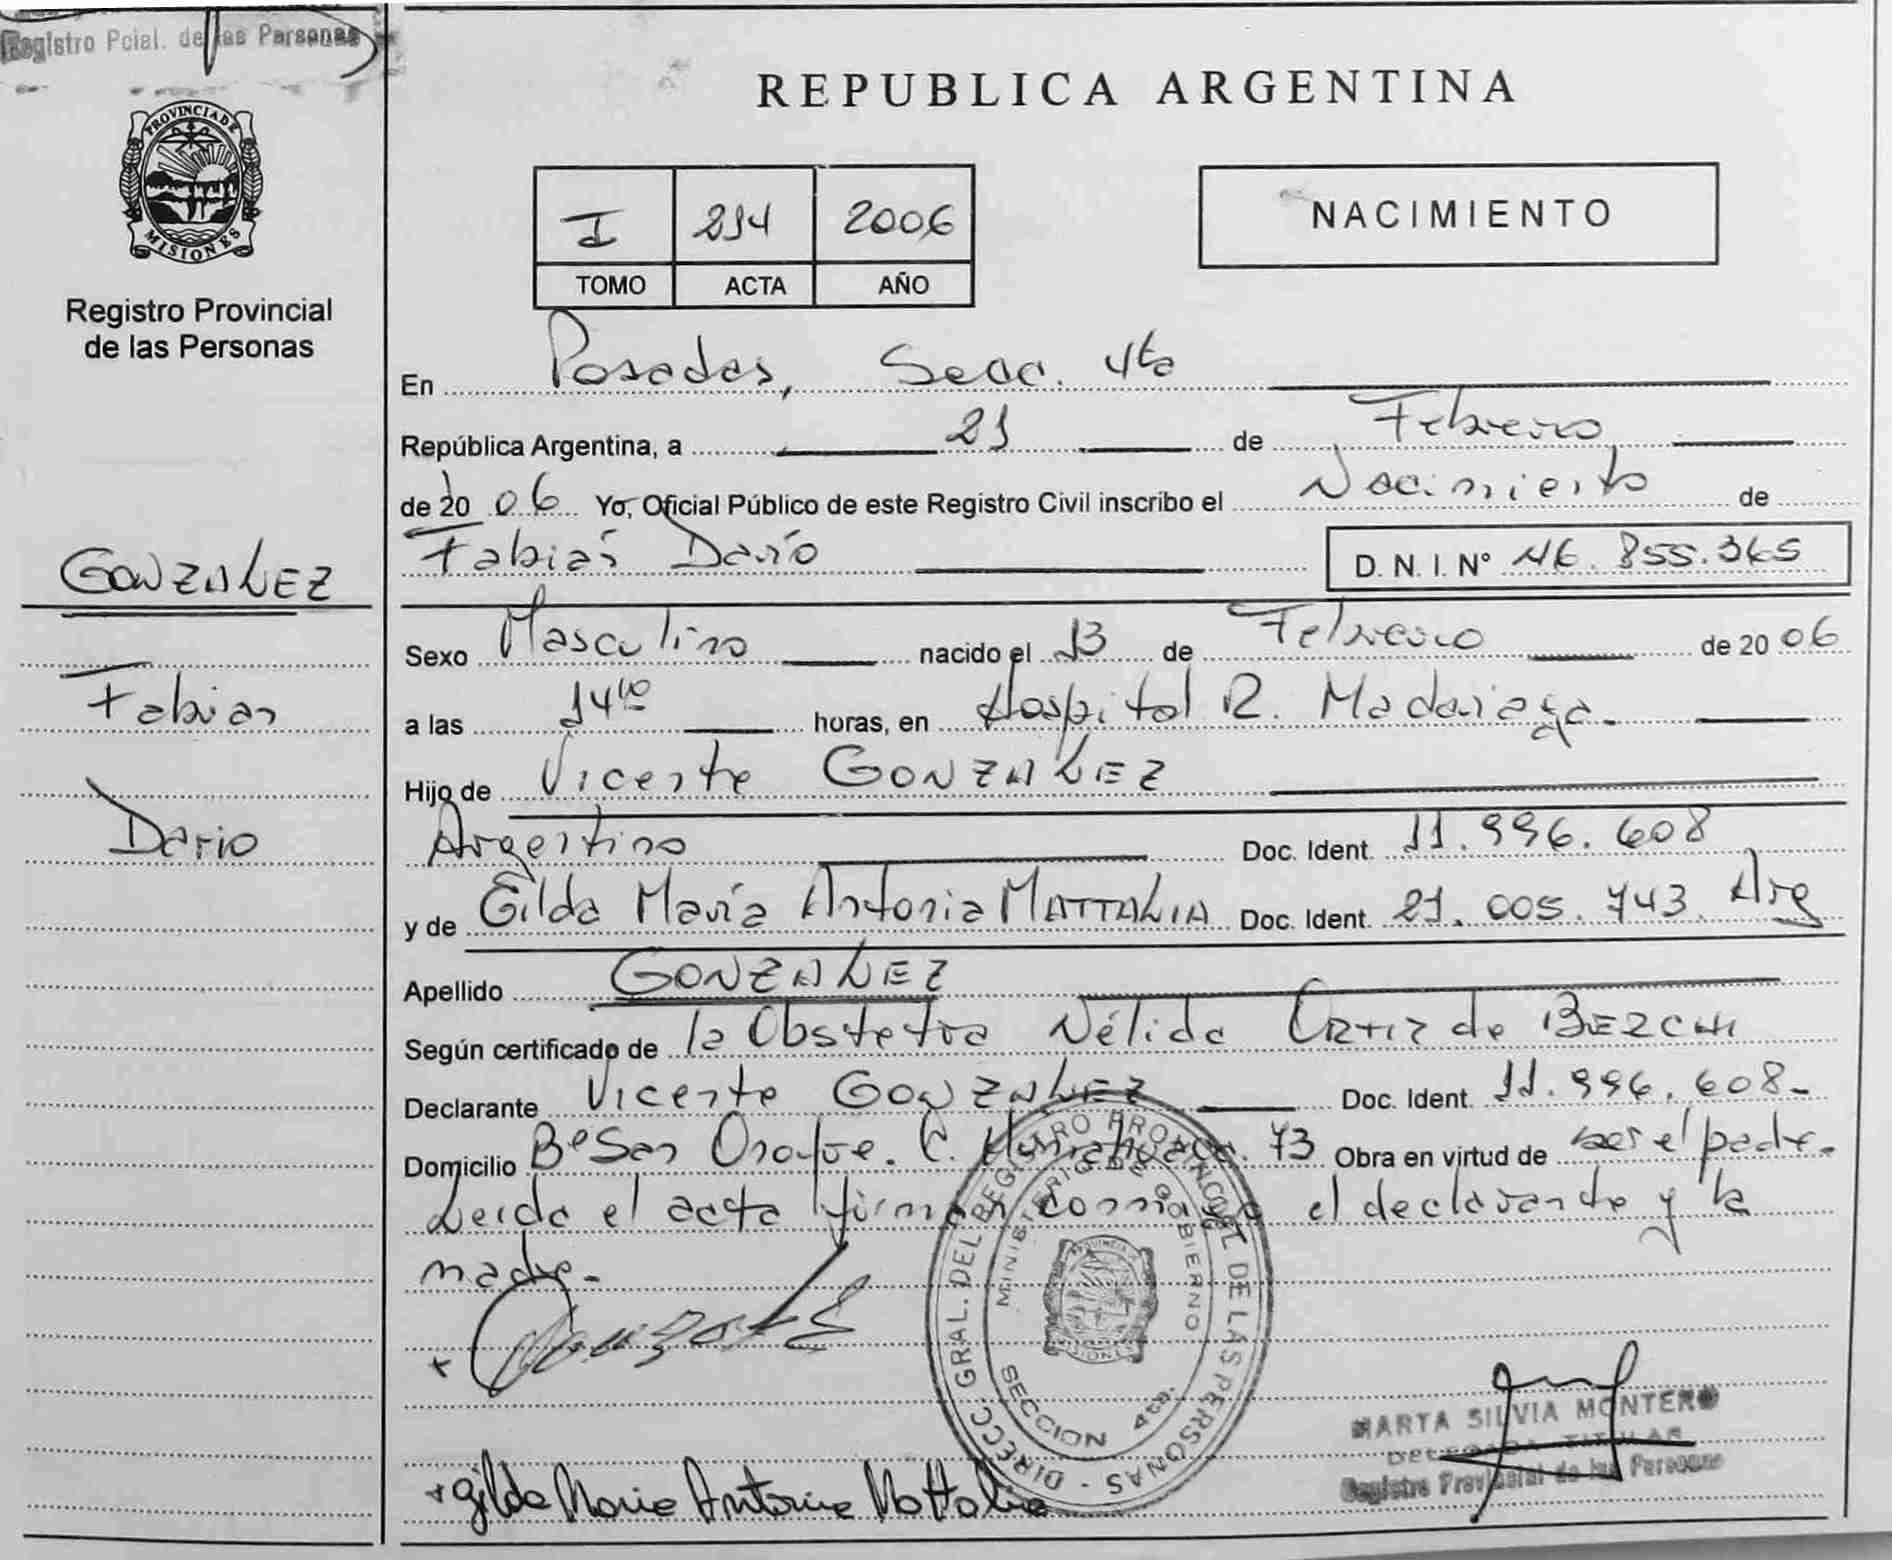 Registro Pcial. de las Personas
PROVINCIA DE
MISIONES
Registro Provincial
de las Personas
GONZALEZ
Fabian
Dario
REPUBLICA ARGENTINA
I 214 2006
TOMO ACTA AÑO
NACIMIENTO
En Posadas, Secc. 4ta
República Argentina, a 21 de Febrero
de 20 06 Yo, Oficial Público de este Registro Civil inscribo el Nacimiento de
Fabián Darío D. N. I. Nº 46.855.365
Sexo Masculino nacido el 13 de Febrero de 20 06
a las 14 horas, en Hospital R. Madariaga.
Hijo de Vicente GONZALEZ
Argentino Doc. Ident. 11.996.608
y de Gilda María Antonia MATTALIA Doc. Ident. 21.005.743 Arg
Apellido GONZALEZ
Según certificado de la Obstetra Nélida ORTIZ de
Declarante Vicente GONZALEZ Doc. Ident. 11.996.608-
Domicilio Bº San Onofre. C. 73 Obra en virtud de ser el padre.
Leida el acta firman conmigo el declarante y la
madre-
DIRECC. GRAL. DEL REGISTRO PROVINCIAL DE LAS PERSONAS -
MINISTERIO DE GOBIERNO
SECCION 4ta.
MISIONES
x Gonzalez
x Gilda Maria Antonia Mattalia
MARTA SILVIA MONTERO
DELEGADA TITULAR
Registro Provincial de las Personas